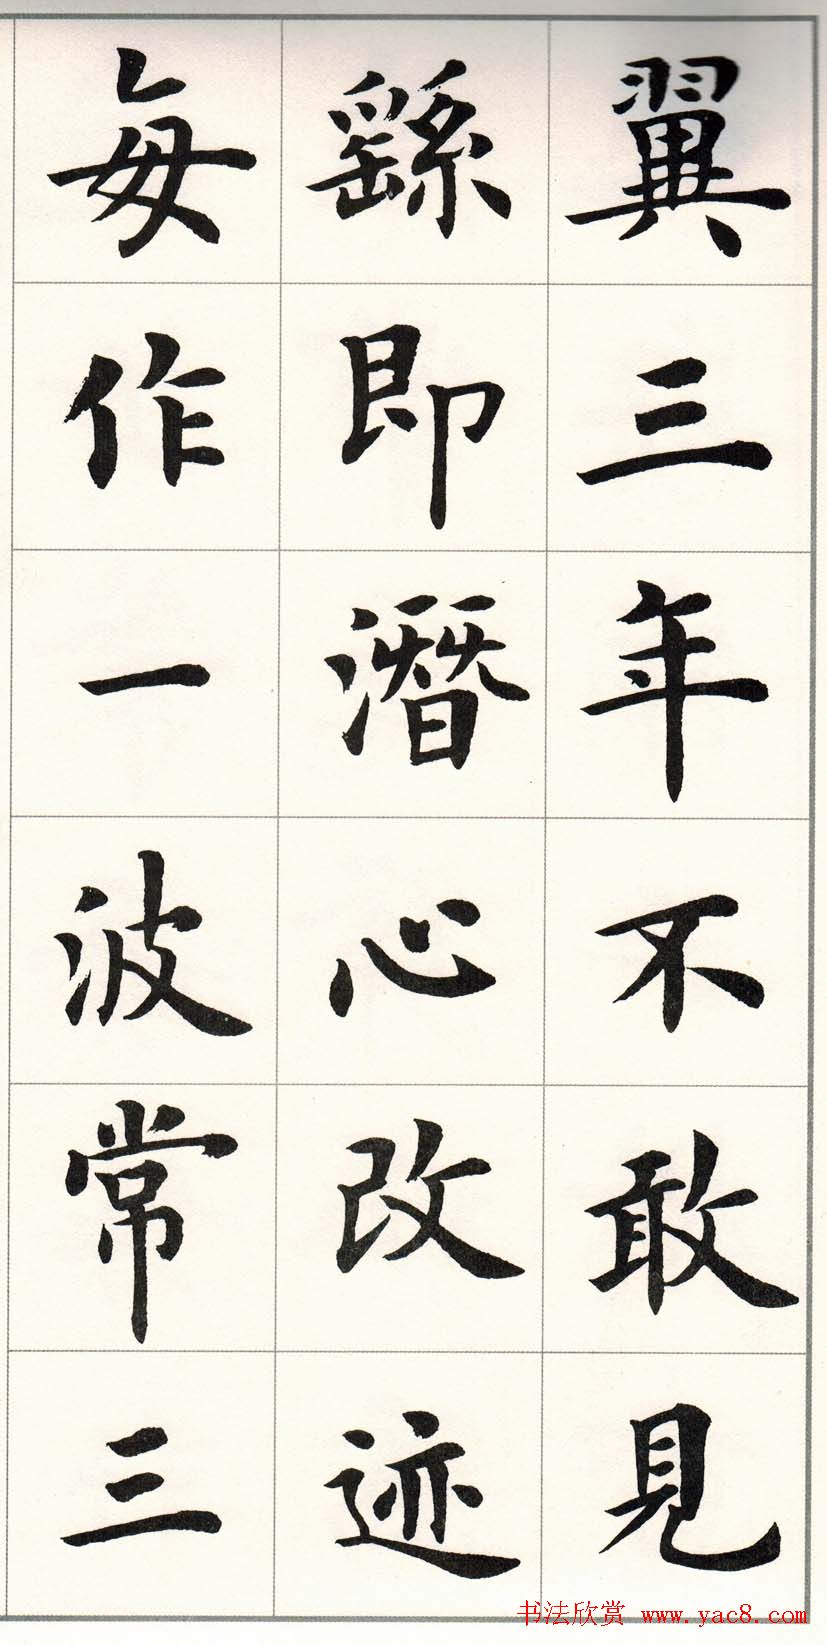 翼三年不敢見
繇即潛心改迹
每作一波常三
书法欣赏 www.yac8.com